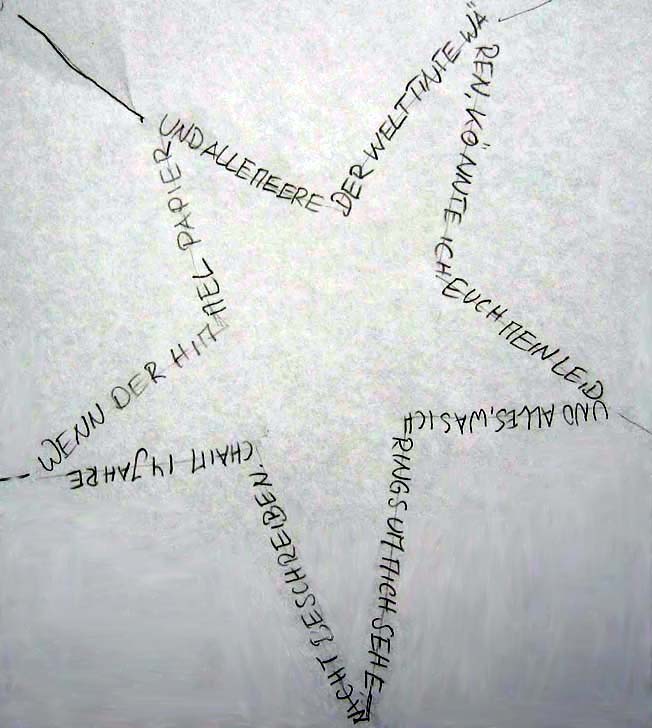 WENN DER HIMMEL PAPIER
UND ALLE MEERE
DER WELT TINTE WÄ
REN, KÖNNTE ICH
EUCH MEIN LEID
UND ALLES, WAS ICH
RINGS UM MICH SEHE
NICHT BESCHREIBEN.
CHAIM 14 JAHRE